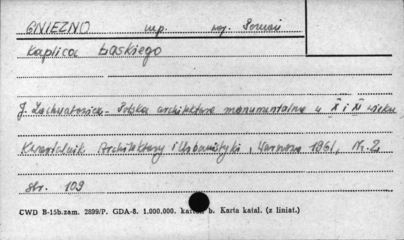 GNIEZNO mp. woj. Poznań
Kaplica Łaskiego
J. Zachwatowicz - Polska architektura monumentalna w X i XI wieku
Kwartalnik Architektury i Urbanistyki, Warszawa 1961, Nr. 2
str. 109
CWD B-15b.zam. 2899/P. GDA-8. 1.000.000. b. Karta katal. (z liniat.)